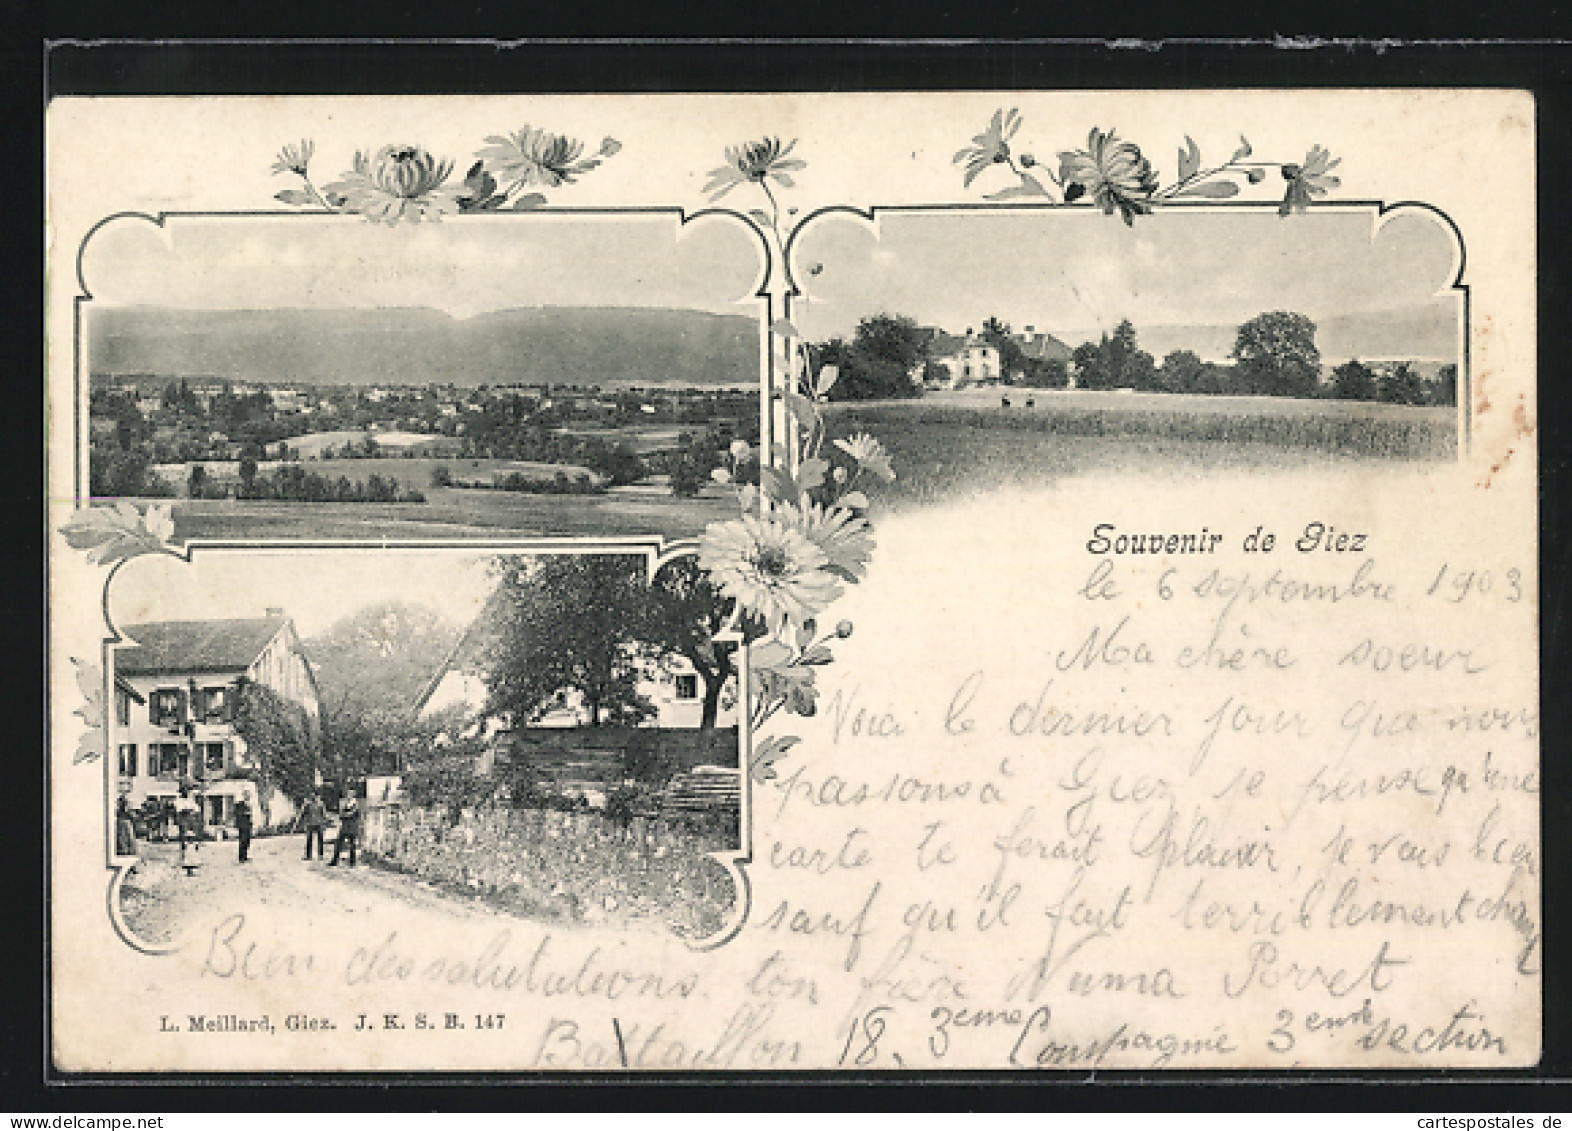 Souvenir de Giez
le 6 septembre 1903
Ma chère soeur
Voici le dernier jour que nous
passons à Giez je pense qu'une
carte te ferait plaisir, je vais bien
sauf qu'il fait terriblement chaud
Bien des salutations. ton frère Numa Porret
L. Meillard, Giez. J. K. S. B. 147
Battaillon 18. 3eme Compagnie 3eme section
cartespostales de